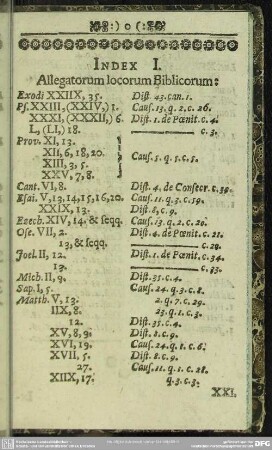 :) o (:
INDEX I.
Allegatorum locorum Biblicorum:
Exodi XXIIX, 35. Dist. 43. can. 1.
Ps. XXIII, (XXIV,) 1. Caus. 13. q. 2. c. 26.
XXXI, (XXXII,) 6. Dist. 1. de Pœnit. c. 4.
L, (LI,) 18. c. 3.
Prov. XI, 13.
XII, 6, 18, 20.
XIII, 3, 5. Caus. 5. q. 5. c. 5.
XXV, 7, 8.
Cant. VI, 8. Dist. 4. de Consecr. c.
Esai. V, 13, 14, 15, 16, 20. Caus. 11. q. 3. c. 59.
XXIX, 13. Dist. 8. c. 9.
Ezech. XIV, 14. & seqq. Caus. 13. q. 2. c. 20.
Ose. VII, 2. Dist. 4. de Pœnit. c. 21.
13, & seqq. c. 20.
Joel. II, 12. Dist. 1. de Pœnit. c. 34.
13. c. 33.
Mich. II, 9. Dist. 35. c. 4.
Sap. I, 5. Caus. 24. q. 3. c. 8.
Matth. V, 13. 2. q. 7. c. 29.
IIX, 8. 23. q. 1. c. 3.
12. Dist. 35. c. 4.
XV, 8, 9. Dist. 8. c. 9.
XVI, 19. Caus. 24. q. 1. c. 6.
XVII, 5. Dist. 8. c. 9.
27. Caus. 11. q. 1. c. 28.
XIIX, 17. q. 3. c. 3.
XXI.